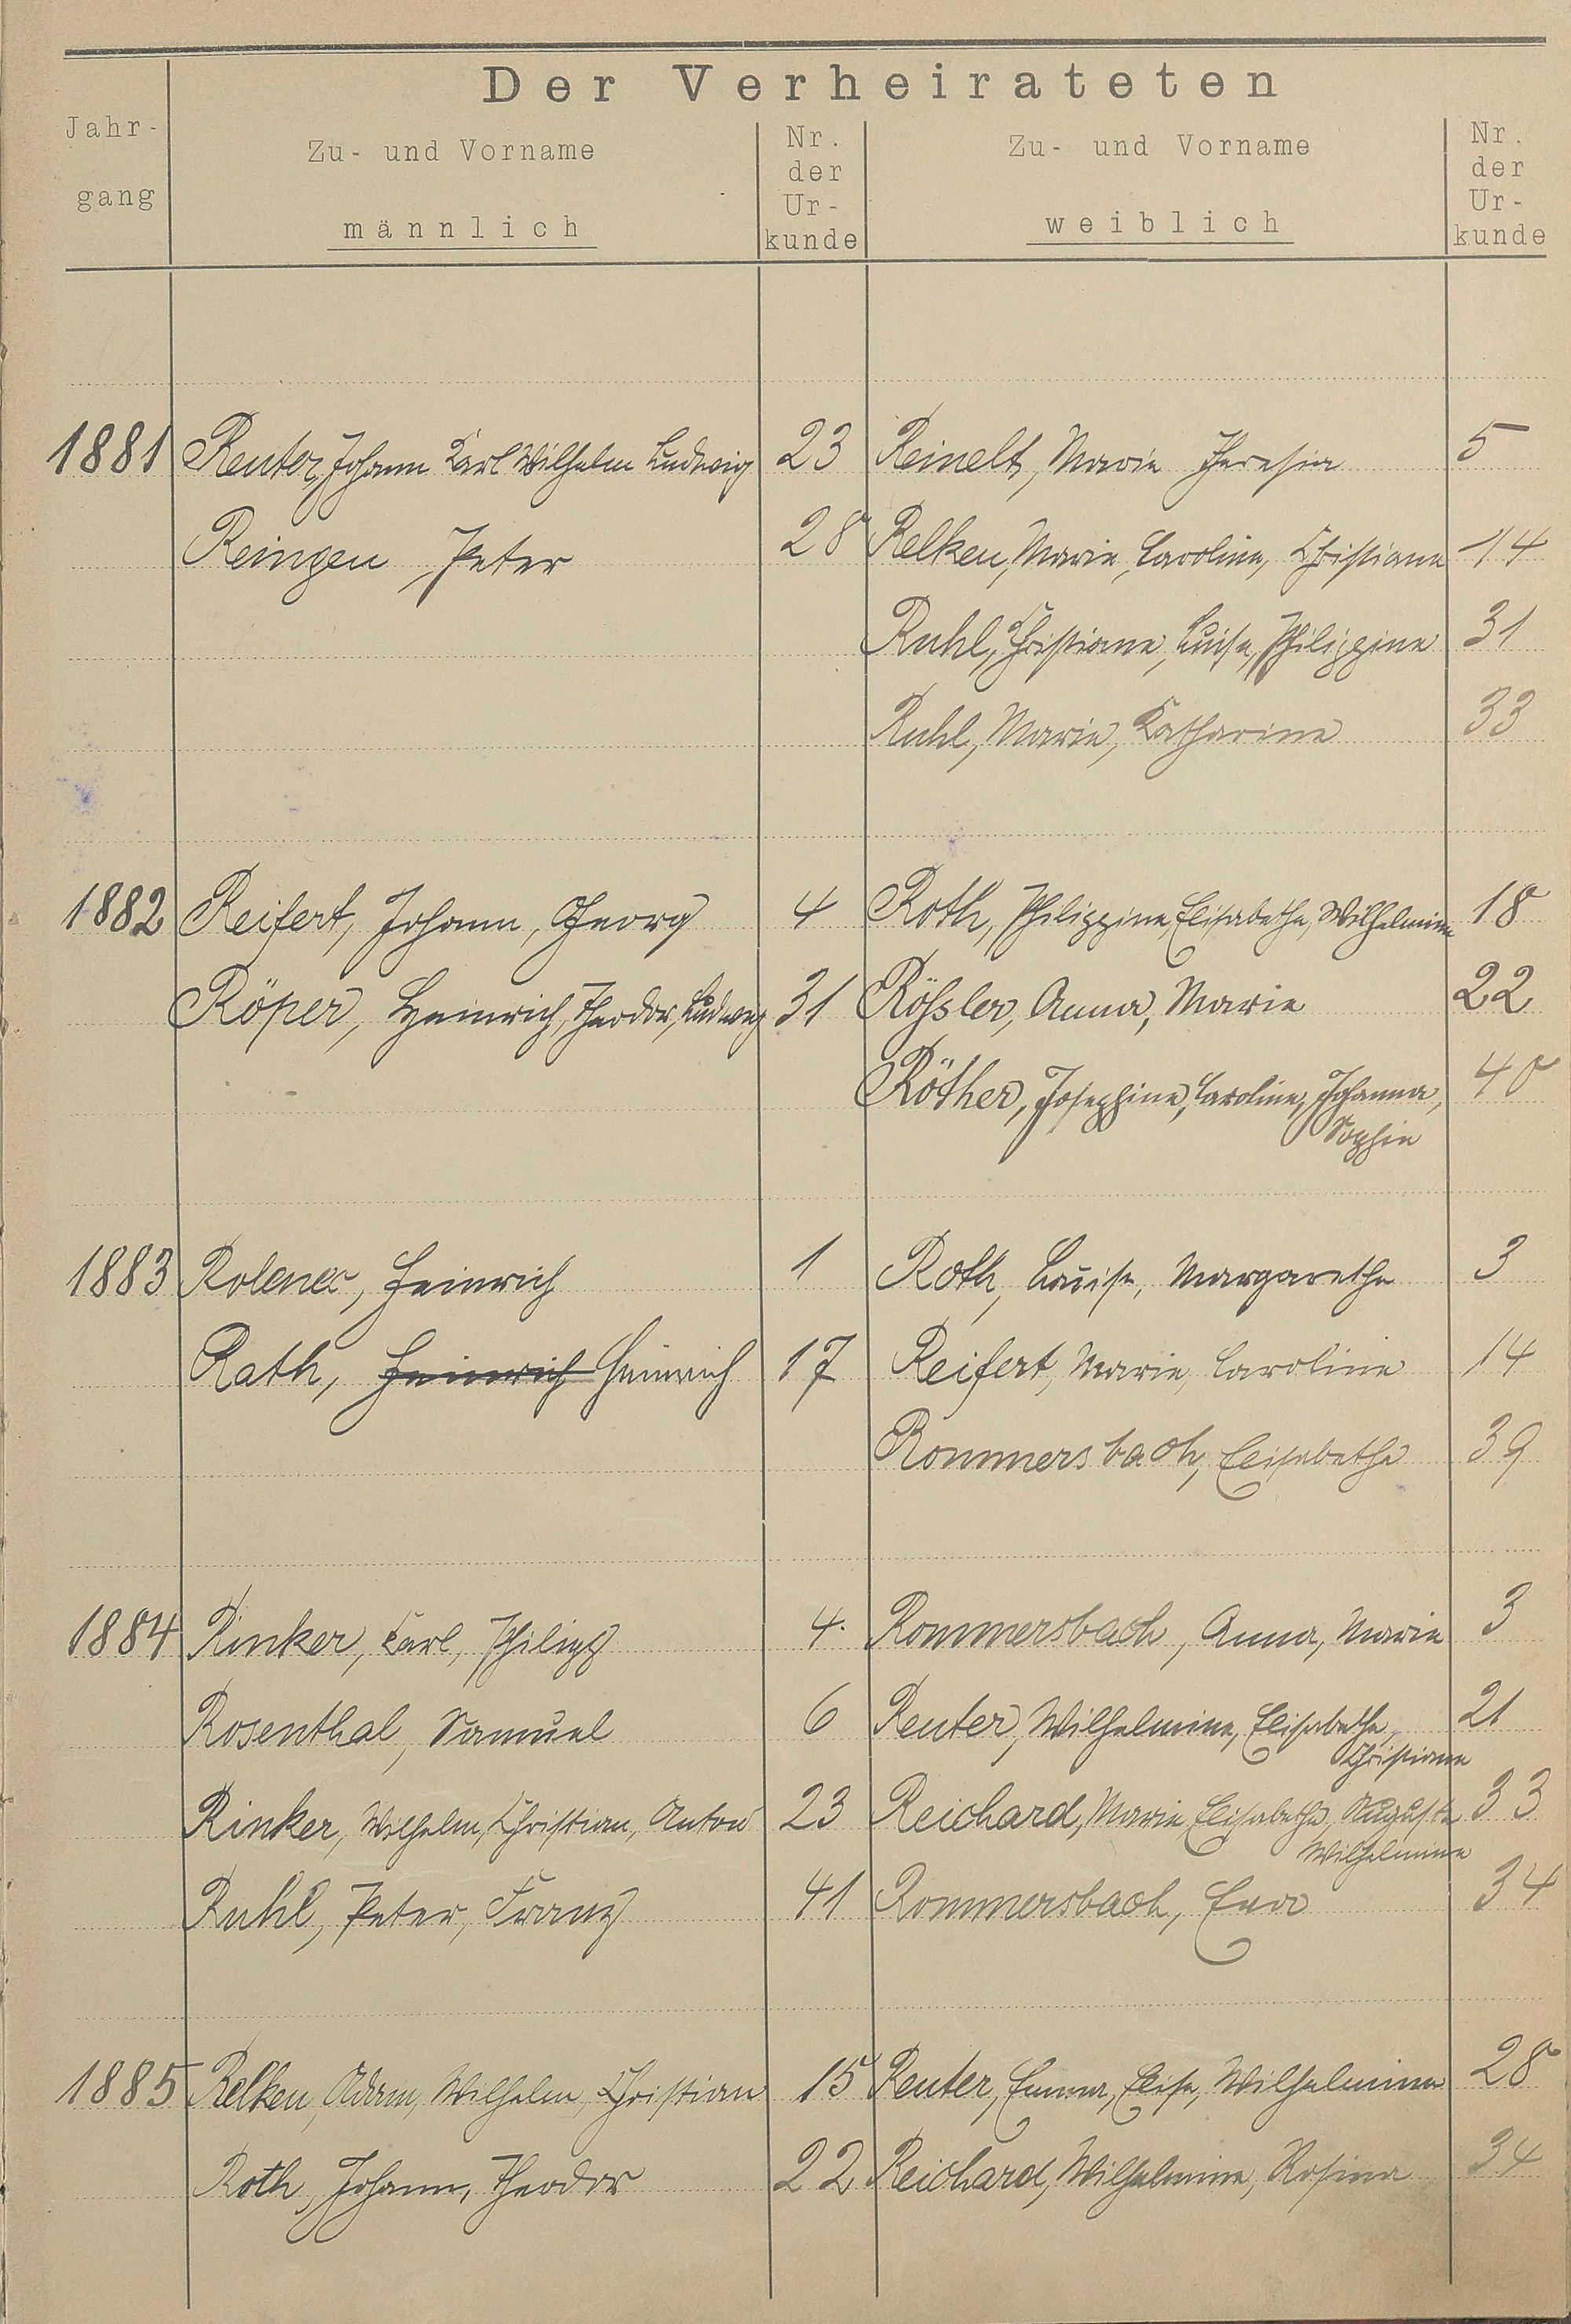 Der Verheirateten
Jahr-
gang
Zu- und Vorname
männlich
Nr.
der
Ur-
kunde
Zu- und Vorname
weiblich
Nr.
der
Ur-
kunde
1881 Reuter, Johann Karl Wilhelm Ludwig 23 Reinelt, Marie Theresia 5
Reingen, Peter 28 Relken, Marie, Caroline, Christiane 14
Ruhl, Christiane, Luise, Philippine 31
Ruhl, Marie, Katharine 33
1882 Reifert, Johann, Georg 4 Roth, Philippine, Elisabethe, Wilhelmine 18
Röper, Heinrich, Theodor, Ludwig 31 Rößler, Anna, Marie 22
Röther, Josephine, Caroline, Johanna, 40
Sophie
1883 Rolener, Heinrich 1 Roth, Louise, Margarethe 3
Rath, Heinrich Heinrich 17 Reifert, Marie, Caroline 14
Rommersbach, Elisabethe 39
1884 Rinker, Karl, Philipp 4. Rommersbach, Anna, Marie 3
Rosenthal, Samuel 6 Reuter, Wilhelmine, Elisabethe, 21
Christiane
Rinker, Wilhelm, Christian, Anton 23 Reichard, Marie Elisabethe, Auguste 33
Wilhelmine
Ruhl, Peter, Franz 41 Rommersbach, Eva 34
1885 Relken, Adam, Wilhelm, Christian 15 Reuter, Emma, Elise, Wilhelmine 28
Roth, Johann, Theodor 22 Reichard, Wilhelmine, Rosina 34